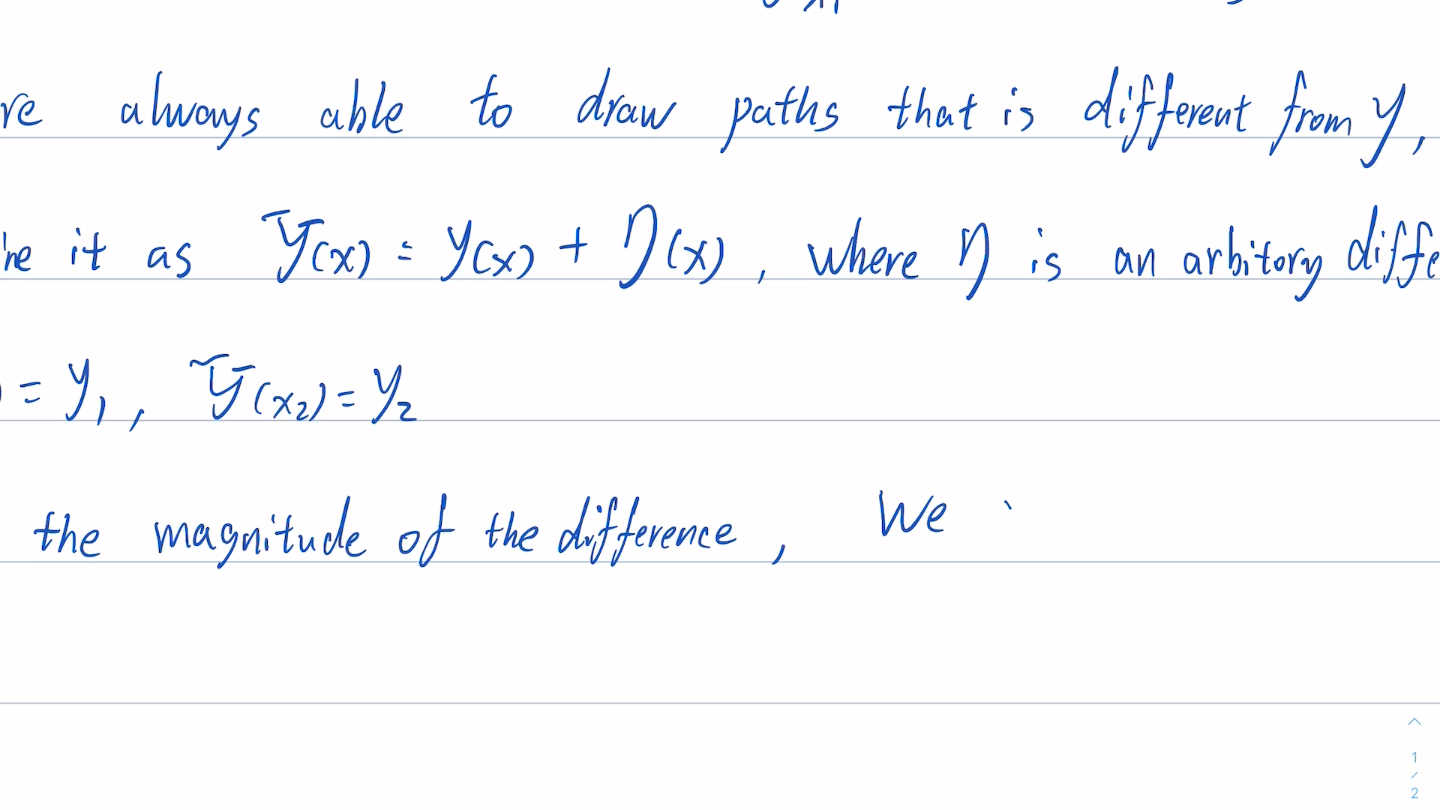 re always able to draw paths that is different from y,
it as ỹ(x) = y(x) + η(x), where η is an arbitory diffe
) = y₁, ỹ(x₂) = y₂
the magnitude of the difference, We
1
/
2